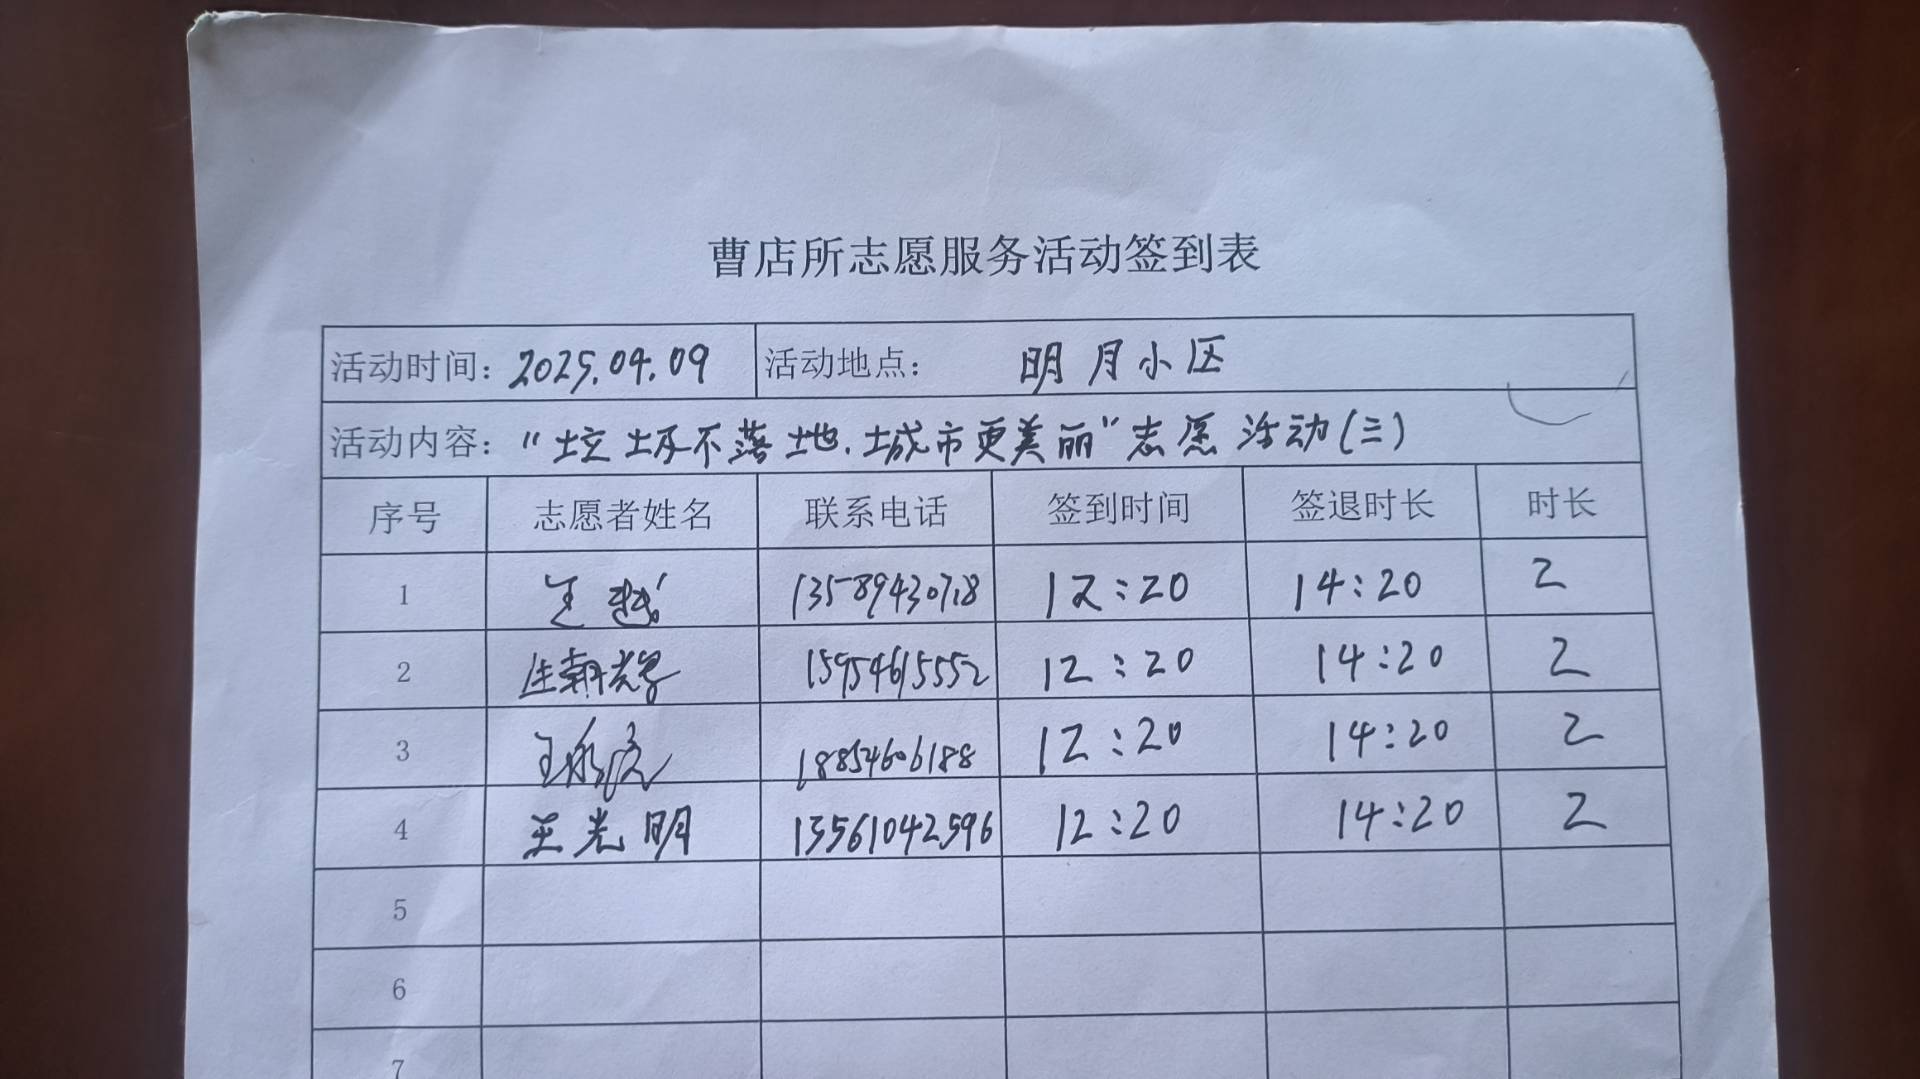 曹店所志愿服务活动签到表
活动时间：2025.04.09 活动地点： 明月小区
活动内容："垃圾不落地.城市更美丽"志愿活动(三)
序号 志愿者姓名 联系电话 签到时间 签退时长 时长
1 王越 13589430718 12:20 14:20 2
2 朝辉 15954615552 12:20 14:20 2
3 王 18854606188 12:20 14:20 2
4 王光明 13561042596 12:20 14:20 2
5
6
7